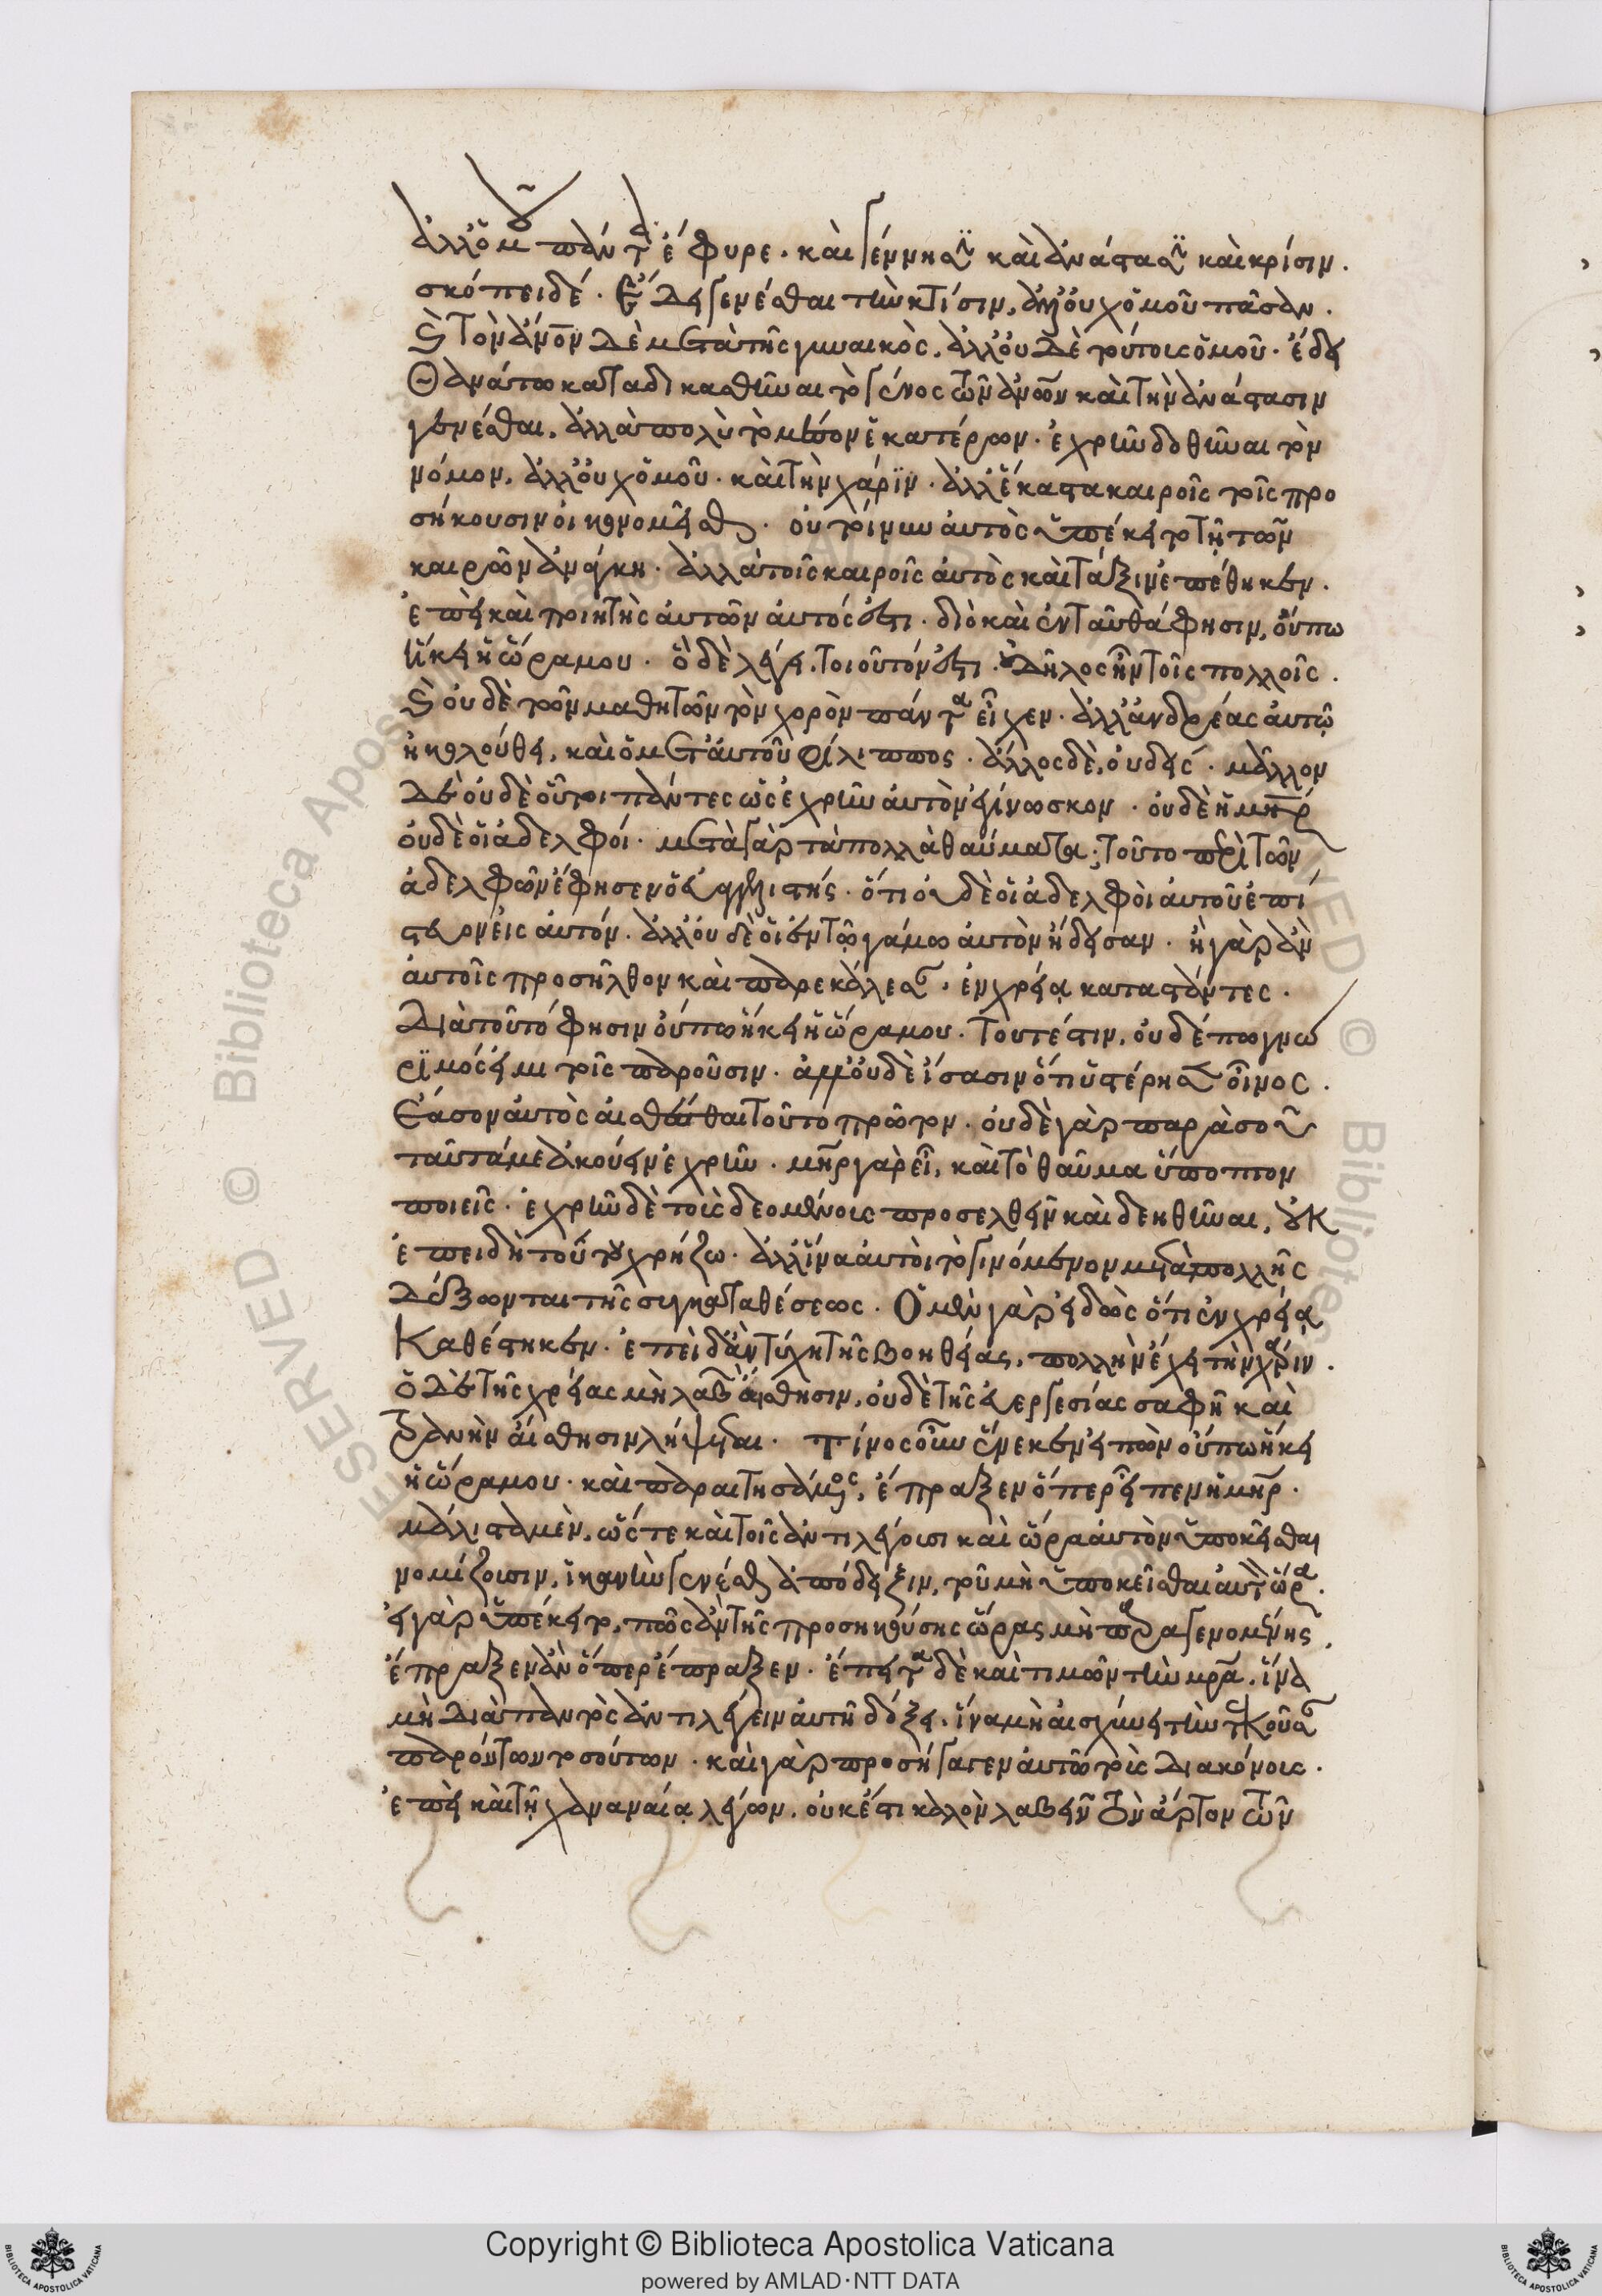 ἀλλ' ὁμοῦ πάντα ἔφυρε. καὶ γέννησιν καὶ ἀνάστασιν καὶ κρίσιν.
σκόπει δέ. ἔδει γενέσθαι τὴν κτίσιν, ἀλλ' οὐχ ὁμοῦ πᾶσαν.
καὶ τὸν ἄνον δὲ μετὰ τῆς γυναικὸς. ἀλλ' οὐδὲ τούτοις ὁμοῦ. ἔδει
θανάτω καταδικασθῆναι τὸ γένος τῶν ἀνων καὶ τὴν ἀνάστασιν
γενέσθαι. ἀλλὰ πολὺ τὸ μέσον ἑκατέρων. ἐχρῆν δοθῆναι τὸν
νόμον, ἀλλ' οὐχ ὁμοῦ. καὶ τὴν χάριν. ἀλλ' ἕκαστα καιροῖς τοῖς προ
σήκουσιν οἰκονομεῖσθαι. οὐ τοίνυν αὐτὸς ὑπέκειτο τῆ τῶν
καιρῶν ἀνάγκη. ἀλλὰ τοῖς καιροῖς αὐτὸς καὶ τάξιν ἐπέθηκεν.
ἐπεὶ καὶ ποιητὴς αὐτῶν αὐτός ἐστι. διὸ καὶ ἐνταῦθά φησιν, οὔπω
ἥκει ἡ ὥρα μου. ὃ δὲ λέγει. τοιοῦτόν ἐστι. δῆλος ἦν τοῖς πολλοῖς.
καὶ οὐδὲ τῶν μαθητῶν τὸν χορὸν πάντα εἶχεν. ἀλλ' ἀνδρέας αὐτῷ
ἠκολούθει, καὶ ὁ μετ' αὐτοῦ φίλιππος. ἄλλος δὲ, οὐδείς. μᾶλλον
δὲ οὐδὲ οὗτοι πάντες ὡς ἐχρῆν αὐτὸν ἐγίνωσκον. οὐδὲ ἡ μηρ
οὐδὲ οἱ ἀδελφοί. μετὰ γὰρ τὰ πολλὰ θαύματα. τοῦτο περὶ τῶν
ἀδελφῶν ἔφησεν ὁ εὐαγγελιστής. ὅτι οὐδὲ οἱ ἀδελφοὶ αὐτοῦ ἐπί
στευον εἰς αὐτόν. ἀλλ' οὐδὲ οἱ ἐν τῷ γάμω αὐτὸν ἤδεισαν. ἦ γὰρ ἂν
αὐτοῖς προσῆλθον καὶ παρεκάλεσαν, ἐν χρείᾳ καταστάντες.
διὰ τοῦτό φησιν οὔπω ἥκει ἡ ὥρα μου. τουτέστιν, οὐδέπω γνώ
ριμός εἰμι τοῖς παροῦσιν. ἀλλ' οὐδὲ ἴσασιν ὅτι ὑστέρησεν οἶνος.
ἔασον αὐτοὺς αἰσθέσθαι τοῦτο πρῶτον. οὐδὲ γὰρ παρὰ σοῦ
ταῦτά με ἀκούειν ἐχρῆν. μηρ γὰρ εἶ, καὶ τὸ θαῦμα ὕποπτον
ποιεῖς. ἐχρῆν δὲ τοὺς δεομένους προσελθεῖν καὶ δεηθῆναι, οὐκ
ἐπειδὴ τούτου χρήζω. ἀλλ' ἵνα αὐτοὶ τὸ γινόμενον μετὰ πολλῆς
δέξωνται τῆς συγκαταθέσεως. ὁ μὲν γὰρ εἰδὼς ὅτι ἐν χρείᾳ
καθέστηκεν. ἐπειδὰν τύχη τῆς βοηθείας, πολλὴν ἔχει τὴν χάριν.
ὁ δὲ τῆς χρείας μὴ λαβὼν αἴσθησιν, οὐδὲ τῆς εὐεργεσίας σαφῆ καὶ
τρανὴν αἴσθησιν λήψεται. τίνος οὖν ἕνεκεν εἰπὼν οὔπω ἥκει
ἡ ὥρα μου. καὶ παραιτησάμενος, ἔπραξεν ὅπερ εἶπεν ἡ μηρ.
μάλιστα μὲν, ὥστε καὶ τοῖς ἀντιλέγουσι καὶ ὥρα αὐτὸν ὑποκεῖσθαι
νομίζουσιν, ἱκανὴν γενέσθαι ἀπόδειξιν, τοῦ μὴ ὑποκεῖσθαι αὐτὸν ὥρα.
εἰ γὰρ ὑπέκειτο, πῶς ἂν τῆς προσηκούσης ὥρας μὴ παραγενομένης,
ἔπραξεν ἂν ὅπερ ἔπραξεν. ἔπειτα δὲ καὶ τιμῶν τὴν μρα. ἵνα
μὴ διὰ παντὸς ἀντιλέγειν αὐτῇ δόξη. ἵνα μὴ αἰσχύνη τὴν τεκοῦσαν
παρόντων τοσούτων. καὶ γὰρ προσήγαγεν αὐτῶ τοὺς διακόνους.
ἐπεὶ καὶ τῇ χαναναίᾳ λέγων. οὐκ ἔστι καλὸν λαβεῖν τὸν ἄρτον τῶν